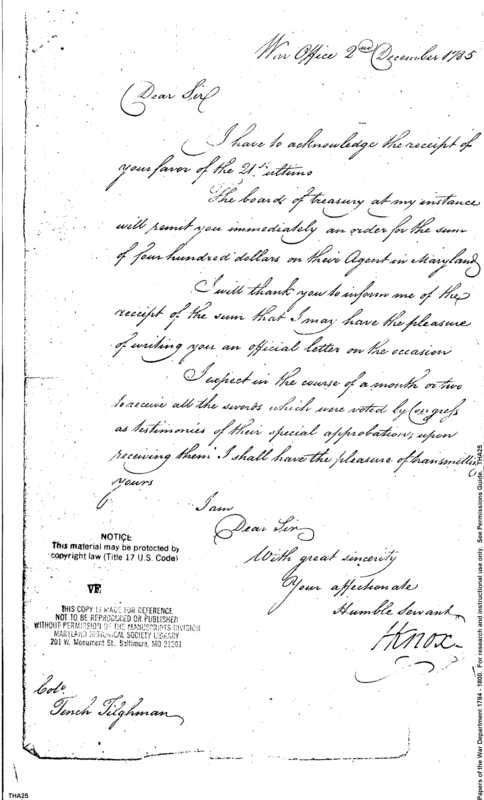 War Office 2nd December 1785
Dear Sir
I have to acknowledge the receipt of
your favor of the 21st ultimo
The board of treasury at my instance
will remit you immediately an order for the sum
of four hundred dollars on their Agent in Maryland
I will thank you to inform me of the
receipt of the sum that I may have the pleasure
of writing you an official letter on the occasion
I expect in the course of a month or two
to receive all the swords which were voted by Congress
as testimonies of their special approbation, upon
receiving them I shall have the pleasure of transmitting
yours
I am
Dear Sir
With great sincerity
Your affectionate
Humble Servant
HKnox
Colo.
Tench Tilghman
NOTICE
This material may be protected by
copyright law (Title 17 U.S. Code)
VF
THIS COPY IS MADE FOR REFERENCE
NOT TO BE REPRODUCED OR PUBLISHED
WITHOUT PERMISSION OF THE MANUSCRIPTS DIVISION
MARYLAND HISTORICAL SOCIETY LIBRARY
201 W. Monument St., Baltimore, MD 21201
THA25
Papers of the War Department 1784 - 1800. For research and instructional use only. See Permissions Guide. THA25